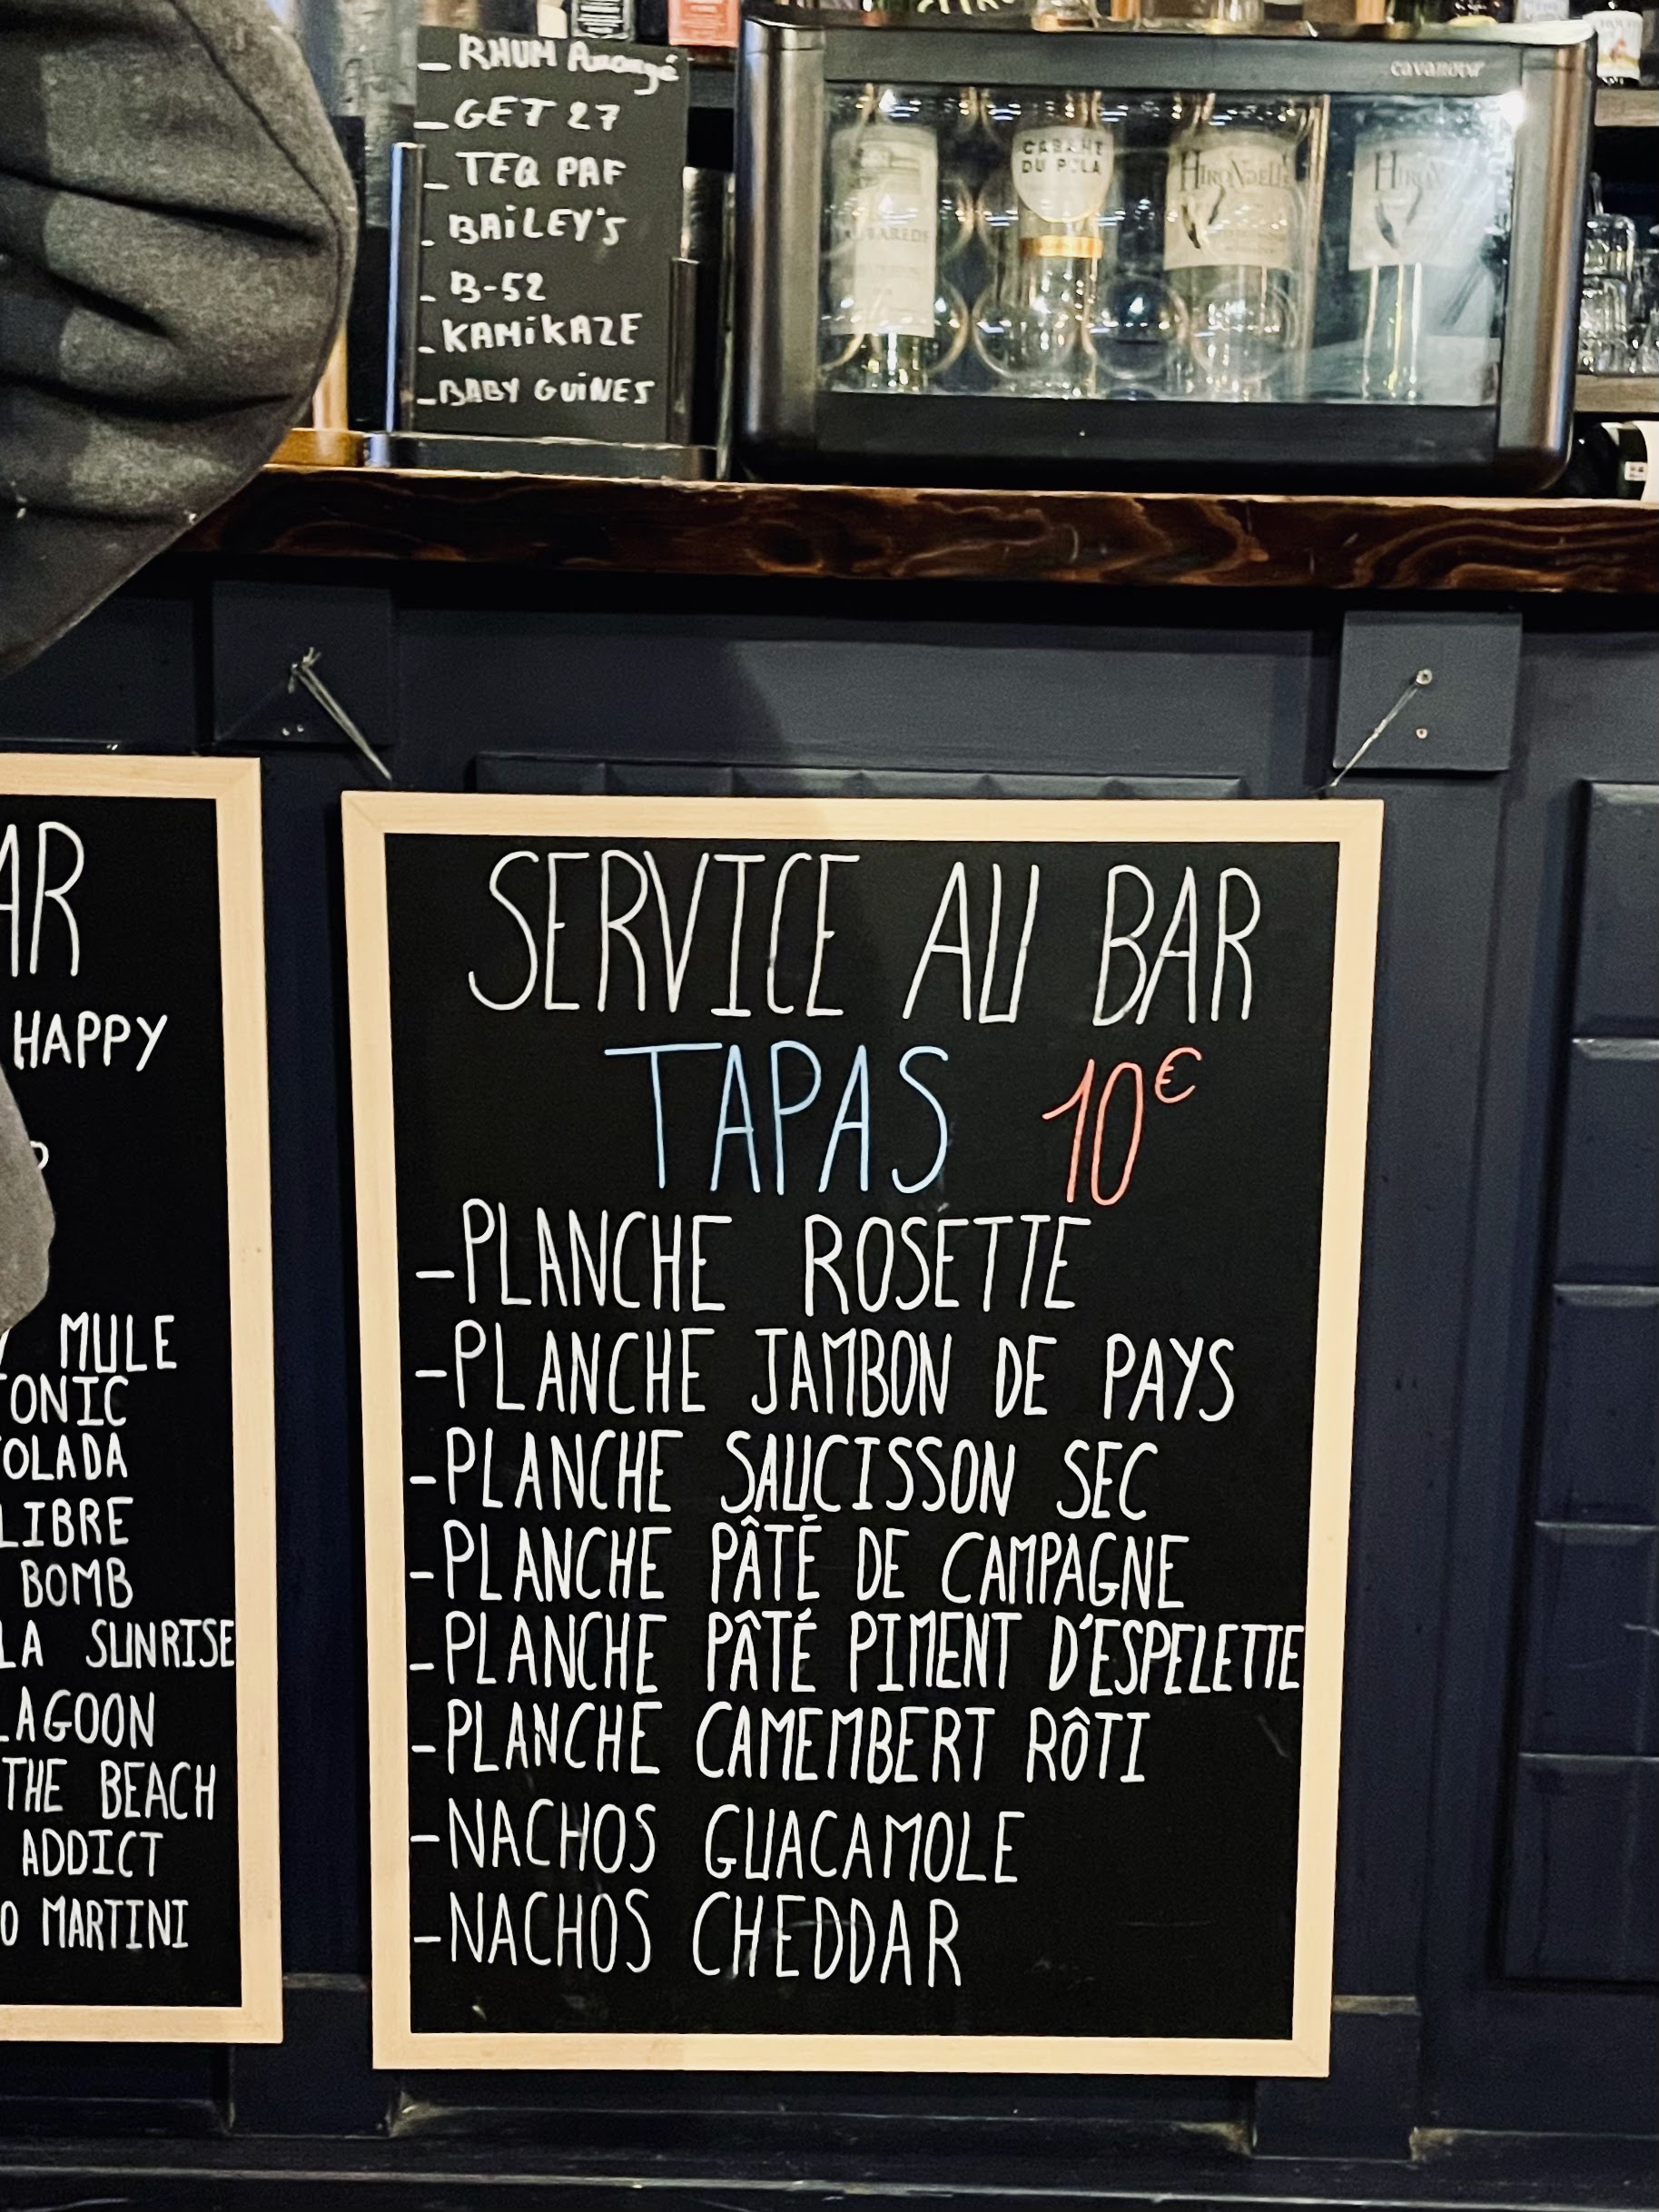 - RHUM Arrangé
- GET 27
- TEQ PAF
- BAiLEY'S
- B-52
- KAMiKAZE
- BABY GUiNES
cavanova
CABANE
DU P LA
HIRONDELLE
AR
HAPPY
MULE
TONIC
OLADA
LIBRE
BOMB
LA SUNRISE
LAGOON
THE BEACH
ADDICT
O MARTINI
SERVICE AU BAR
TAPAS 10€
-PLANCHE ROSETTE
-PLANCHE JAMBON DE PAYS
-PLANCHE SAUCISSON SEC
-PLANCHE PÂTÉ DE CAMPAGNE
-PLANCHE PÂTÉ PIMENT D'ESPELETTE
-PLANCHE CAMEMBERT RÔTI
-NACHOS GUACAMOLE
-NACHOS CHEDDAR